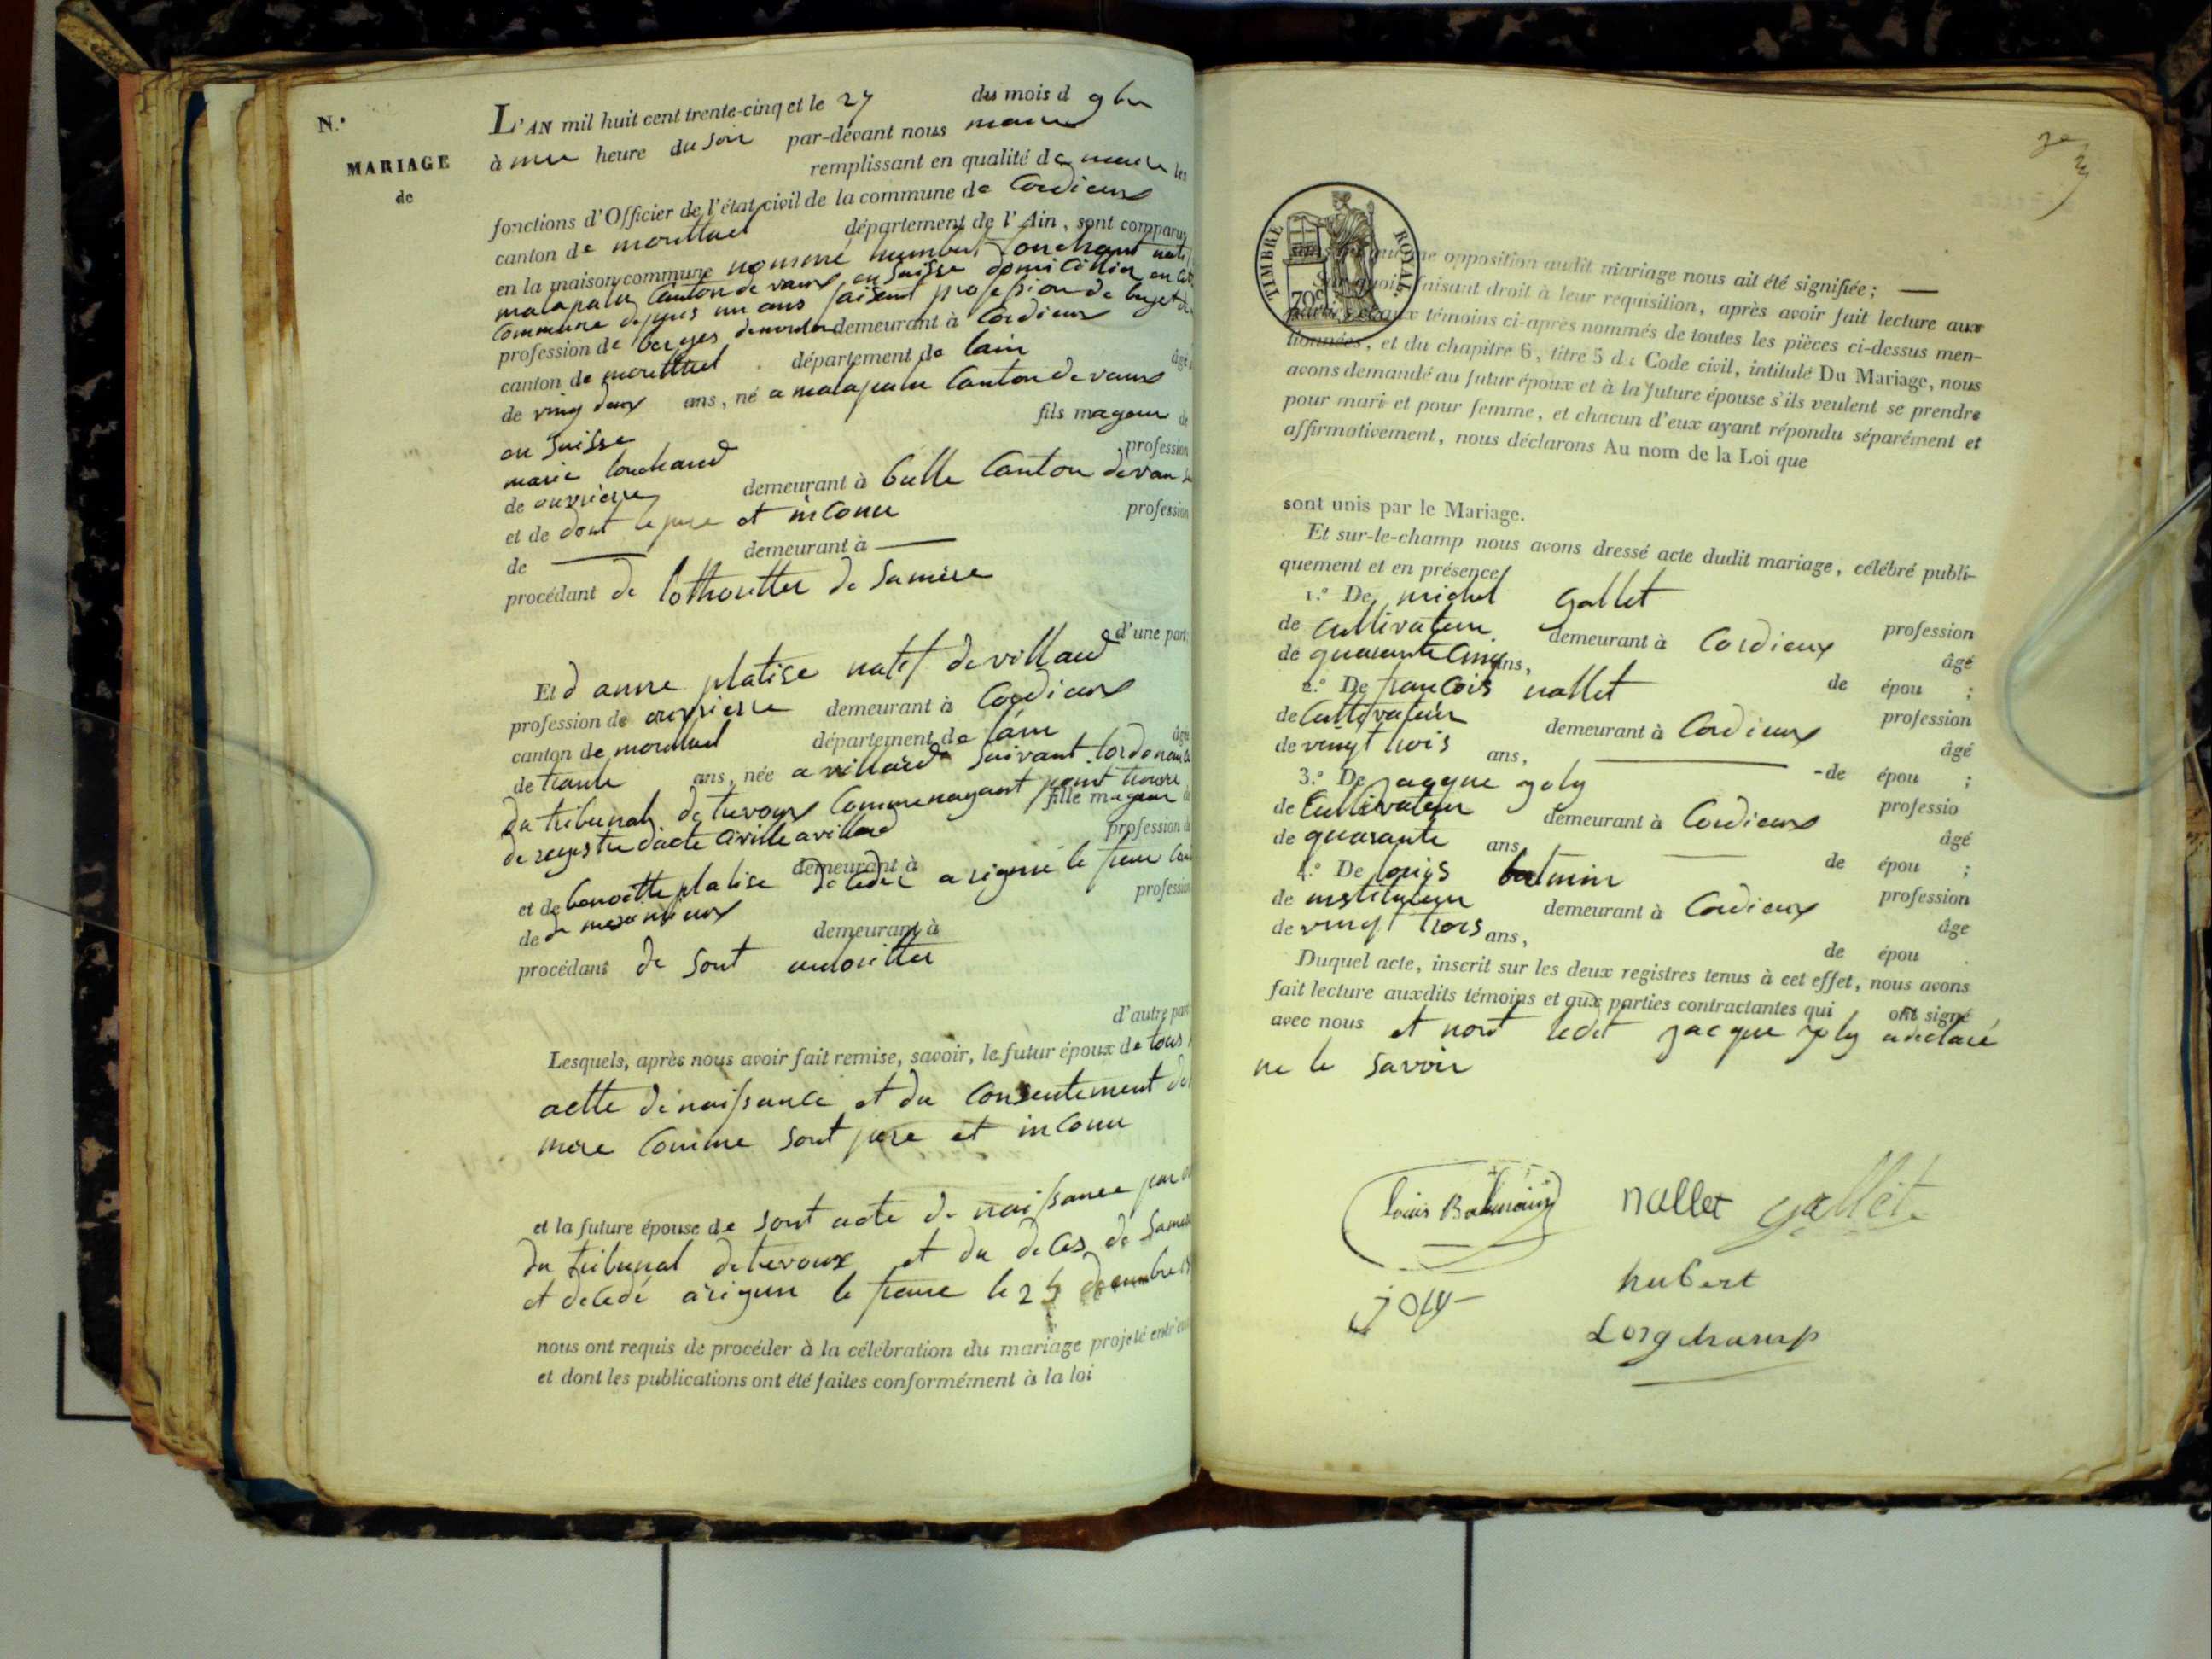 N.º
MARIAGE
de
L'AN mil huit cent trente-cinq et le 27 du mois d 9bre
à une heure du soir par-devant nous maire
remplissant en qualité de maire les
fonctions d'Officier de l'état civil de la commune de Cordieux
canton de montluel département de l'Ain, sont comparus
en la maison commune nommé humbert natif
malapalu Canton de vaux en Suisse domicilier en
Commune depuis un ans faisant profession de
profession de demeurant à Cordieux
canton de montluel département de lain âgé
de ving deux ans, né a malapalu Canton de vaux
en Suisse fils mageur de
marie louchand profession
de ouvriere demeurant à bulle Canton de vau
et de dont le pere et inConu profession
de — demeurant à —
procédant de lothoritter de Samere
d'une part
Et d anne platise natif de villard
profession de ouvriere demeurant à Cordieux
canton de montluel département de lain âgée
de trante ans, née a villard Suivant lordonance
du tribunal de trevoux Comme nayant point trouvé
fille mageur de
de regestre dacte Civille a villard
profession de
demeurant à
et de benoitte platise de Cedée a rignié le franc
de de meximieux profession
demeurant à
procédant de Sont autoritter
d'autre part
Lesquels, après nous avoir fait remise, savoir, le futur époux de tous
actte de naissance et du Consentement de
mere Comme Sont pere et inConu
et la future épouse de Sont acte de naissance par
du tribunal de trevoux et du deces de Samere
et decedé a rignieu le franc le 25 decembre
nous ont requis de procéder à la célébration du mariage projeté entr'eux
et dont les publications ont été faites conformément à la loi
TIMBRE ROYAL.
70c
opposition audit mariage nous ait été signifiée; —
faisant droit à leur requisition, après avoir fait lecture aux
parties et aux témoins ci-après nommés de toutes les pièces ci-dessus men-
tionnées, et du chapitre 6, titre 5 du Code civil, intitulé Du Mariage, nous
avons demandé au futur époux et à la future épouse s'ils veulent se prendre
pour mari et pour femme, et chacun d'eux ayant répondu séparément et
affirmativement, nous déclarons Au nom de la Loi que
sont unis par le Mariage.
Et sur-le-champ nous avons dressé acte dudit mariage, célébré publi-
quement et en présence
1.º De michel gallet profession
de Cultivateur demeurant à Cordieux âgé
de quarante Cinq ans, de épou ;
2.º De francois nallet profession
de Cultivateur demeurant à Cordieux âgé
de vingt trois ans, — de épou ;
3.º De jacque joly professio
de Cultivateur demeurant à Cordieux âgé
de quarante ans — de épou ;
4.º De louis balmin profession
de instituteur demeurant à Cordieux âge
de vingt trois ans, de épou .
Duquel acte, inscrit sur les deux registres tenus à cet effet, nous avons
fait lecture auxdits témoins et aux parties contractantes qui ont signé
avec nous et nont ledit jacque joly a declaré
ne le Savoir
Louis Balmain nallet gallet
hubert
joly
Longchamp